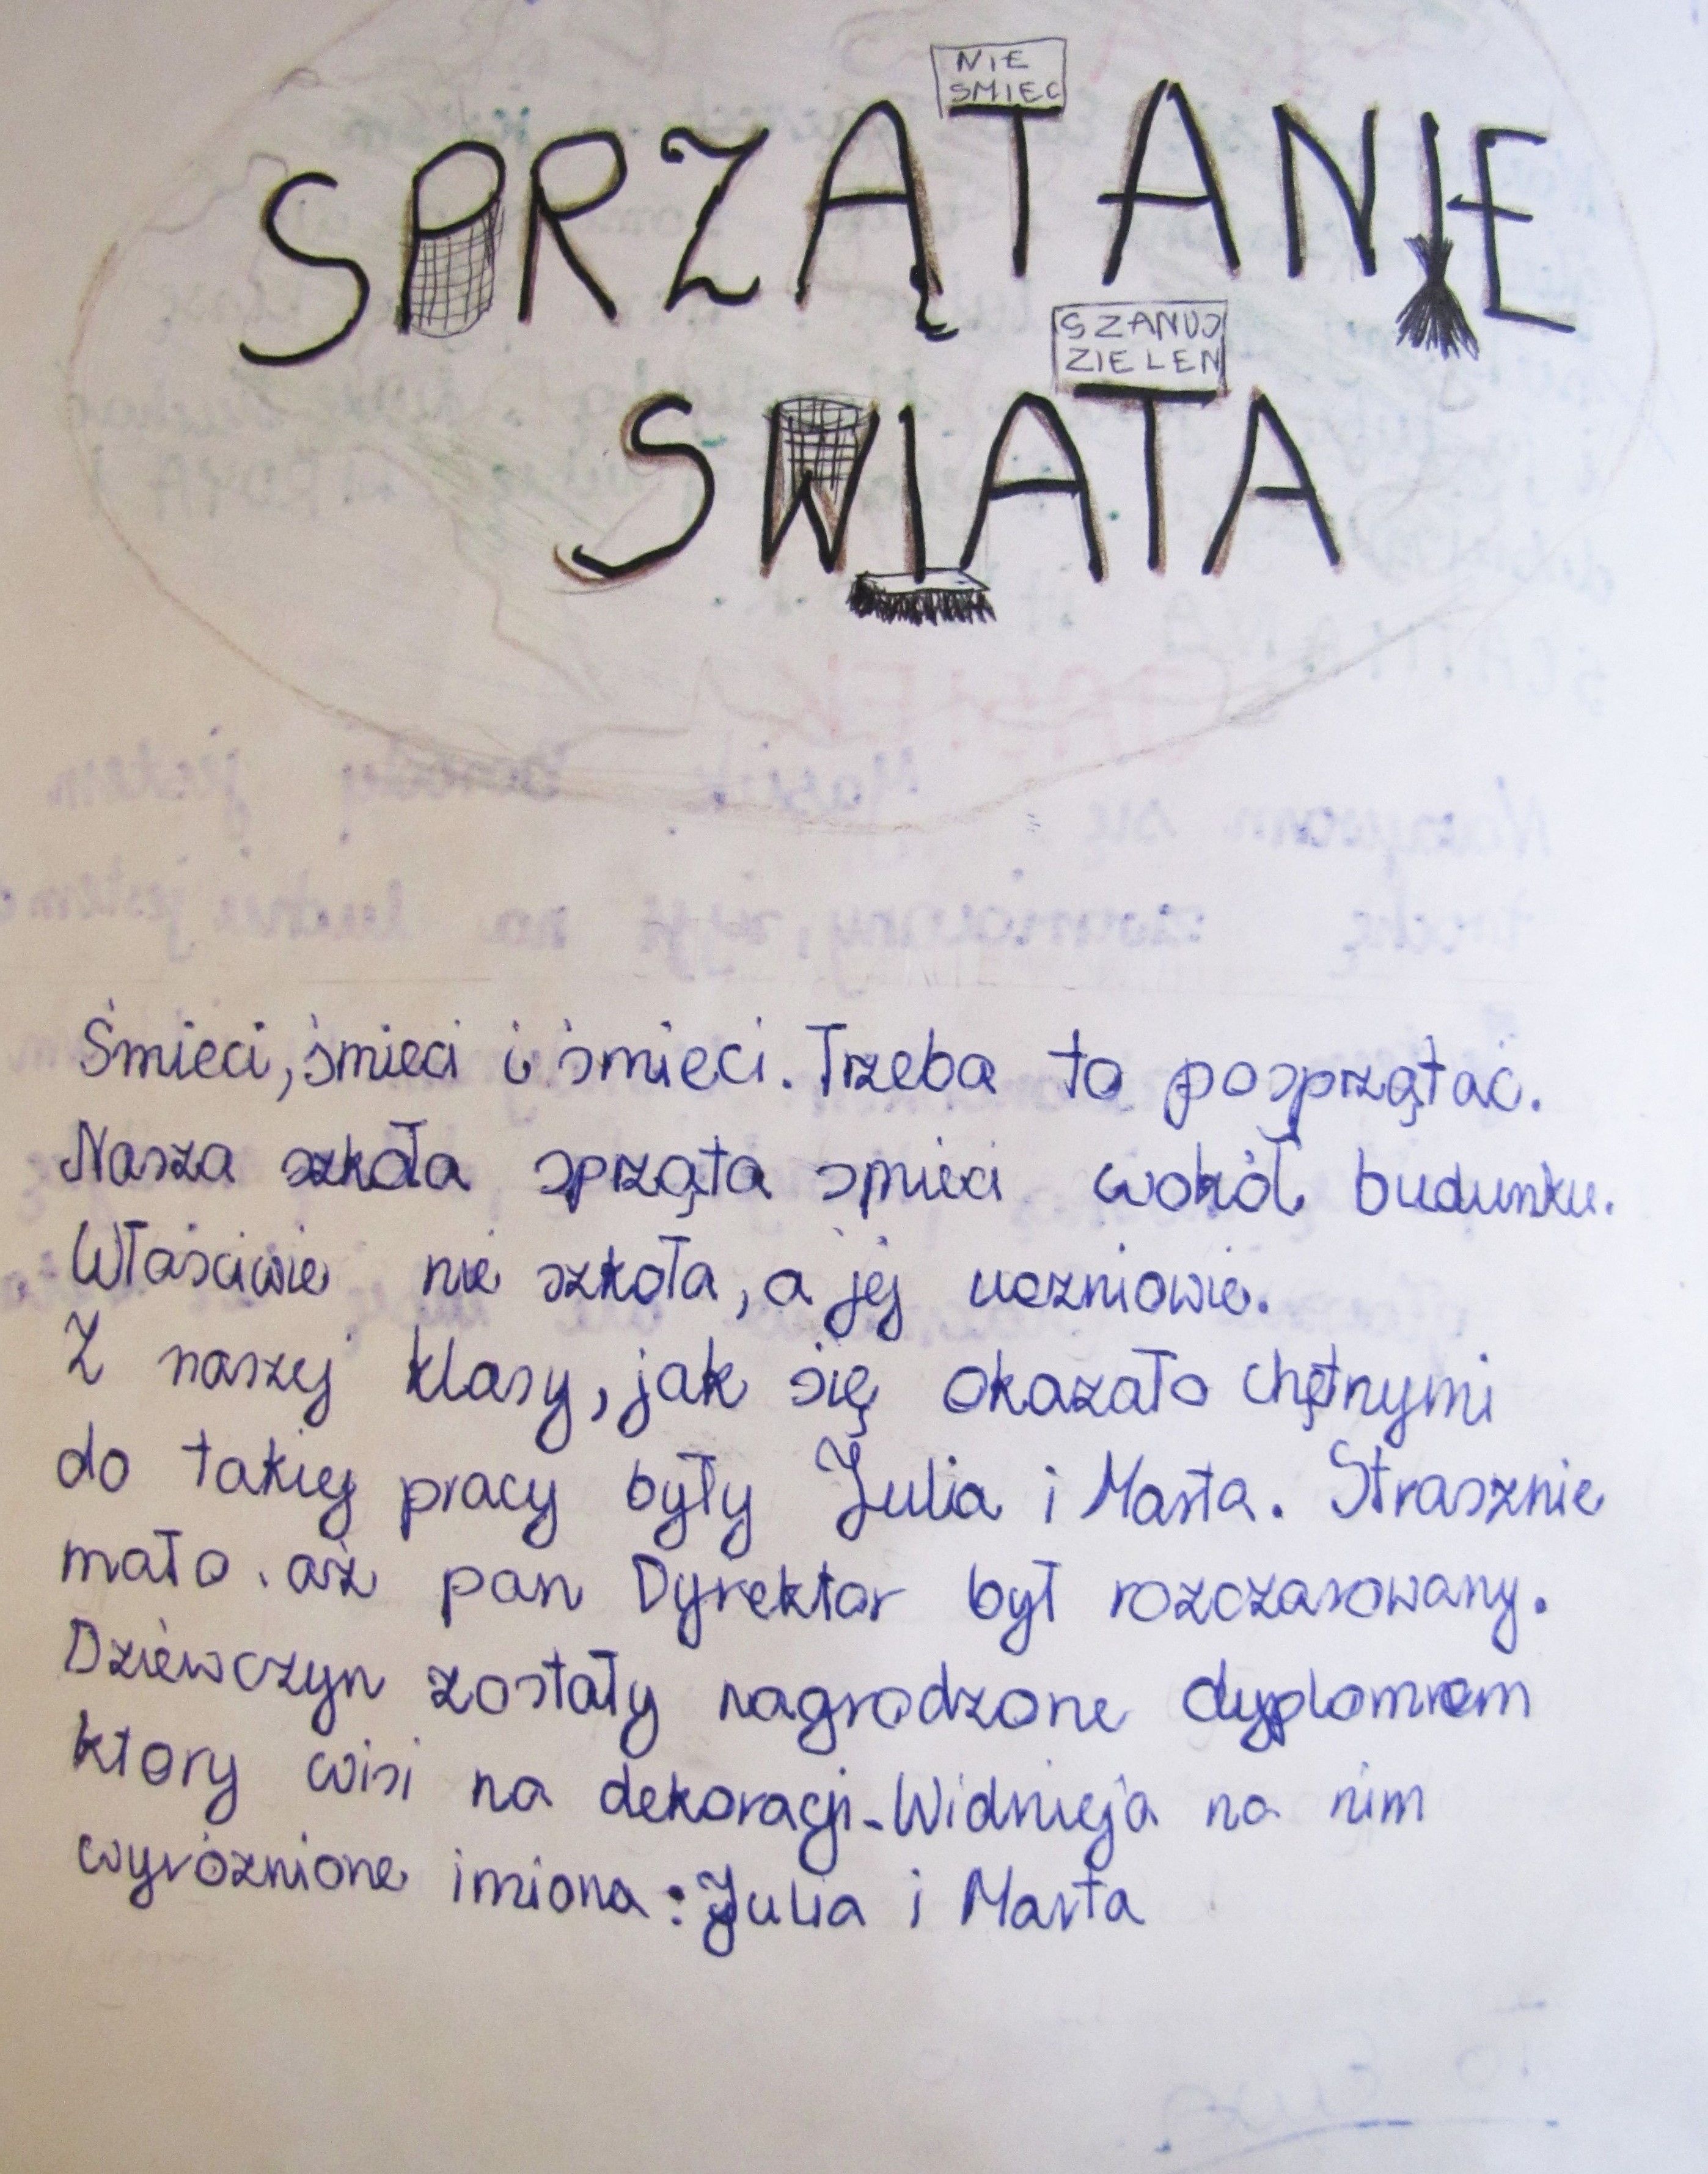 NIE
SMIEC
SPRZĄTANIE
SZANUJ
ZIELEN
SWIATA
Śmieci, śmieci i śmieci. Trzeba to posprzątać.
Nasza szkoła sprząta smieci wokół budunku.
Właściwie nie szkoła, a jej uczniowie.
Z naszej klasy, jak się okazało chętnymi
do takiej pracy były Julia i Marta. Strasznie
mało. aż pan Dyrektor był rozczarowany.
Dziewczyn zostały nagrodzone dyplomem
ktory wisi na dekoracji. Widnieja na nim
wyróznione imiona: Julia i Marta